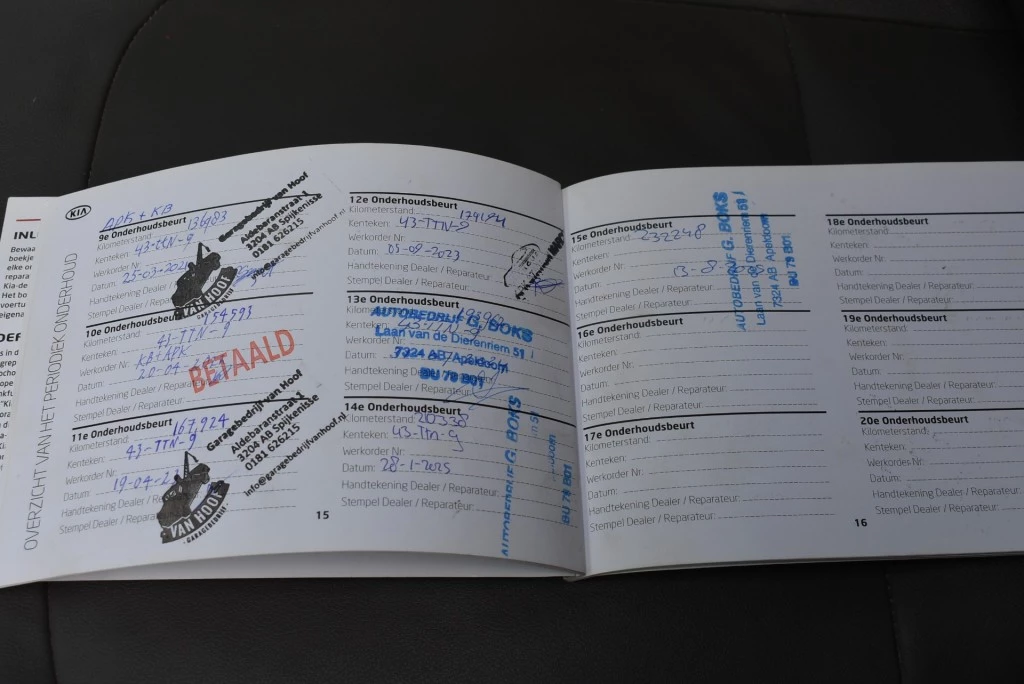 KIA
OVERZICHT VAN HET PERIODIEK ONDERHOUD
APK + KB
9e Onderhoudsbeurt
Kilometerstand: 136983
Kenteken: 43-TTN-9
Werkorder Nr.:
Datum: 25-03-2021
Handtekening Dealer / Reparateur:
Stempel Dealer / Reparateur:
Garagebedrijf van Hoof
Aldebaranstraat 1
3204 AB Spijkenisse
0181 626215
info@garagebedrijfvanhoof.nl
VAN HOOF
GARAGEBEDRIJF
10e Onderhoudsbeurt
Kilometerstand: 154593
Kenteken: 43-TTN-9
Werkorder Nr.: KB+APK
Datum: 20-04
Handtekening Dealer / Reparateur:
Stempel Dealer / Reparateur:
BETAALD
11e Onderhoudsbeurt
Kilometerstand: 167,924
Kenteken: 43-TTN-9
Werkorder Nr.:
Datum: 19-04-23
Handtekening Dealer / Reparateur:
Stempel Dealer / Reparateur:
Garagebedrijf van Hoof
Aldebaranstraat 1
3204 AB Spijkenisse
0181 626215
info@garagebedrijfvanhoof.nl
VAN HOOF
GARAGEBEDRIJF
15
12e Onderhoudsbeurt
Kilometerstand: 179194
Kenteken: 43-TTN-9
Werkorder Nr.:
Datum: 03-09-2023
Handtekening Dealer / Reparateur:
Stempel Dealer / Reparateur:
13e Onderhoudsbeurt
Kilometerstand:
Kenteken: 43-TTN-9
Werkorder Nr.:
Datum:
Handtekening Dealer / Reparateur:
Stempel Dealer / Reparateur:
AUTOBEDRIJF G. BOKS
Laan van de Dierenriem 51
7324 AB Apeldoorn
BU 78 B01
14e Onderhoudsbeurt
Kilometerstand: 20338
Kenteken: 43-TTN-9
Werkorder Nr.:
Datum: 28-1-2025
Handtekening Dealer / Reparateur:
Stempel Dealer / Reparateur:
AUTOBEDRIJF G. BOKS
BU 78 B01
15e Onderhoudsbeurt
Kilometerstand: 232248
Kenteken:
Werkorder Nr.:
Datum: 13-8-
Handtekening Dealer / Reparateur:
Stempel Dealer / Reparateur:
AUTOBEDRIJF G. BOKS
Laan van de Dierenriem 51
7324 AB Apeldoorn
BU 78 B01
16e Onderhoudsbeurt
Kilometerstand:
Kenteken:
Werkorder Nr.:
Datum:
Handtekening Dealer / Reparateur:
Stempel Dealer / Reparateur:
17e Onderhoudsbeurt
Kilometerstand:
Kenteken:
Werkorder Nr.:
Datum:
Handtekening Dealer / Reparateur:
Stempel Dealer / Reparateur:
18e Onderhoudsbeurt
Kilometerstand:
Kenteken:
Werkorder Nr.:
Datum:
Handtekening Dealer / Reparateur:
Stempel Dealer / Reparateur:
19e Onderhoudsbeurt
Kilometerstand:
Kenteken:
Werkorder Nr.:
Datum:
Handtekening Dealer
Stempel Dealer / Reparateur:
20e Onderhoudsbeurt
Kilometerstand:
Kenteken:
Werkordes Nr.:
Datum:
Handtekening Dealer / Reparateur:
Stempel Dealer / Reparateur:
16